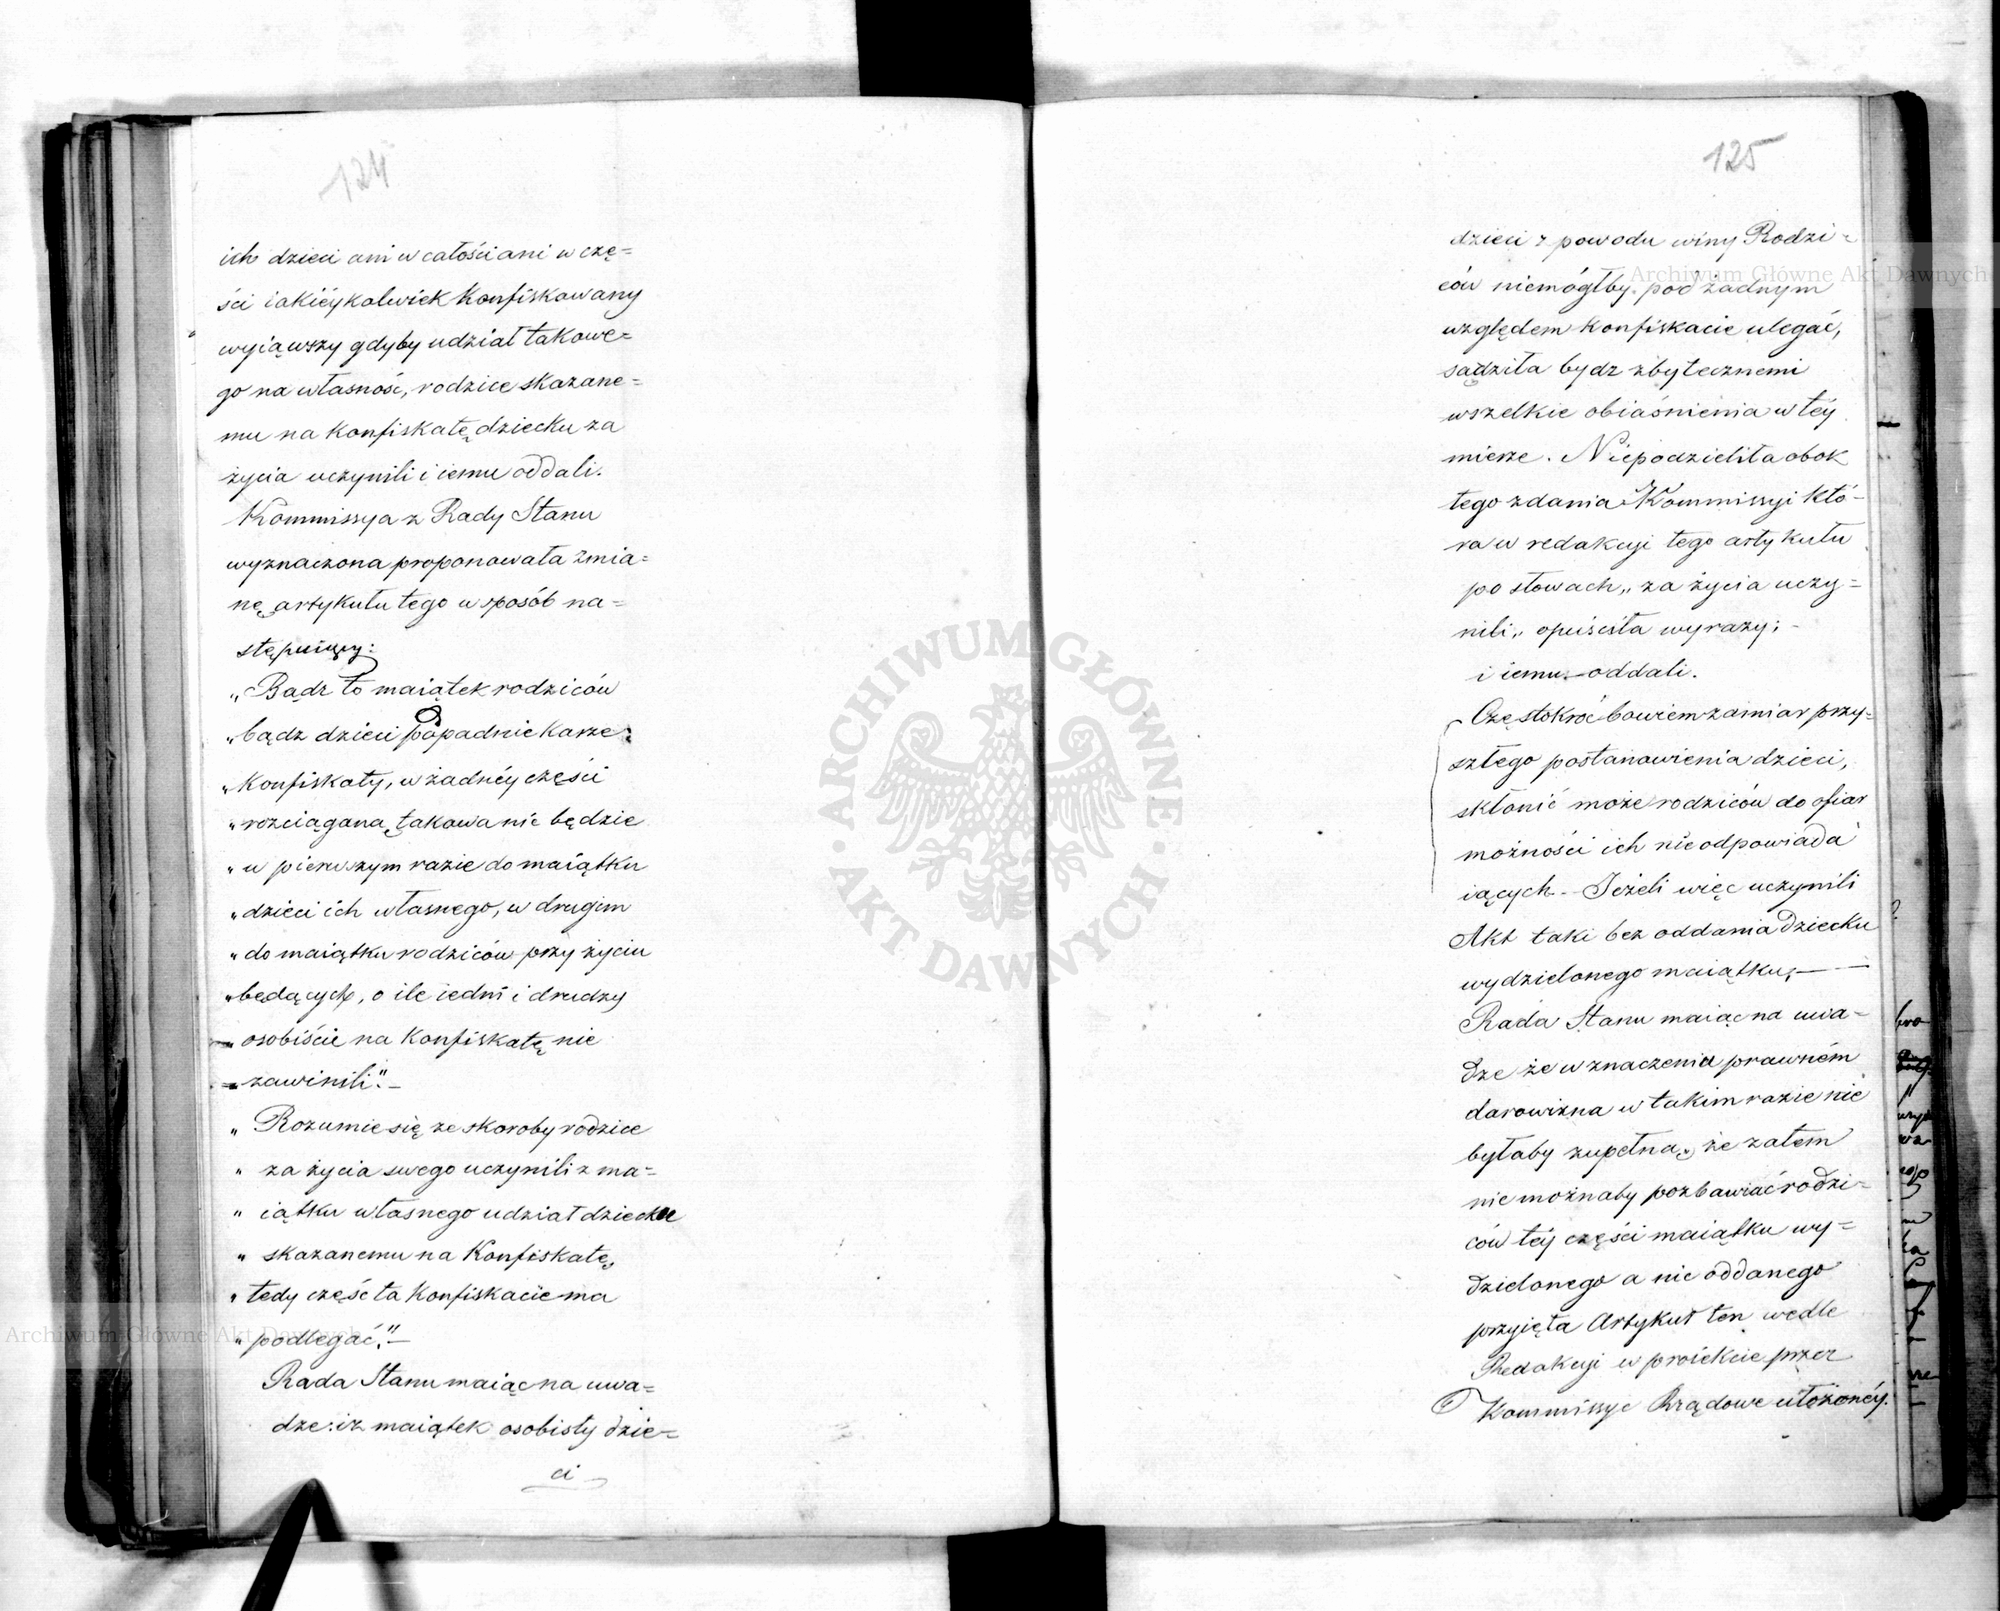 124
ich dzieci ani w całości ani w czę=
ści iakiéykolwiek Konfiskowany
wyiąwszy gdyby udział takowe=
go na własność, rodzice skazane=
mu na Konfiskatę dziecku za
życia uczynili i iemu oddali.
Kommissya z Rady Stanu
wyznaczona proponowała zmia=
nę artykułu tego w sposób na=
stępuiący:
„Bądz to maiątek rodziców
„bądz dzieci popadnie Karze
„Konfiskaty, w żadnéy części
„rozciąganą takowa nie będzie
„w pierwszym razie do maiątku
„dzieci ich własnego, w drugim
„do maiątku rodziców przy życiu
„będących, o ile iedni i drudzy
„osobiście na Konfiskatę nie
„zawinili.”—
„Rozumie się ze skoroby rodzice
„za życia swego uczynili z ma=
„iątku własnego udział dziecku
„skazanemu na Konfiskatę,
„tedy część ta Konfiskacie ma
„podlegać.”—
Rada Stanu maiąc na uwa=
dze: iz maiątek osobisty dzie=
ci
125
dzieci z powodu winy Rodzi=
ców niemógłby pod żadnym
względem Konfiskacie ulegać,
sądziła bydz zbytecznemi
wszelkie obiaśnienia w téy
mierze. Niepodzieliła obok
tego zdania Kommissyi któ=
ra w redakcyi tego artykułu
po słowach „za życia uczy=
nili„ opuściła wyrazy; -
i iemu oddali.
Częstokroć bowiem zamiar przy=
szłego postanowienia dzieci,
skłonić może rodziców do ofiar
możności ich nieodpowiada
iących - Jeżeli więc uczynili
Akt taki bez oddania dziecku
wydzielonego maiątku, —
Rada Stanu maiąc na uwa=
dze że w znaczeniu prawném
darowizna w takim razie nie
byłaby zupełna, że zatem
nie możnaby pozbawiać rodzi=
ców téy części maiątku wy=
dzielonego a nie oddanego
przyięła Artykuł ten wedle
Redakcyi w proiekcie przez
Kommissye Rządowe ułożonéy.
ARCHIWUM GŁÓWNE
AKT DAWNYCH
Archiwum Główne Akt Dawnych
Archiwum Główne Akt Dawnych